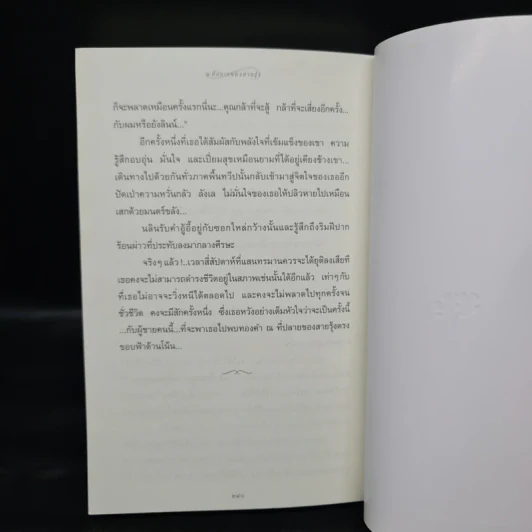 ก็จะพลาดเหมือนครั้งแรกนี่นะ...คุณกล้าที่จะสู้ กล้าที่จะเสี่ยงอีกครั้ง...
กับผมหรือยังลินน์..."
อีกครั้งหนึ่งที่เธอได้สัมผัสกับพลังใจที่เข้มแข็งของเขา ความ
รู้สึกอบอุ่น มั่นใจ และเปี่ยมสุขเหมือนยามที่ได้อยู่เคียงข้างเขา...
เดินทางไปด้วยกันทั่วภาคพื้นทวีปนั้นกลับเข้ามาสู่จิตใจของเธออีก
ปัดเป่าความหวั่นกลัว ลังเล ไม่มั่นใจของเธอให้ปลิวหายไปเหมือน
เสกด้วยมนตร์ขลัง...
นลินรับคำอู้อี้อยู่กับซอกไหล่กว้างนั้นและรู้สึกถึงริมฝีปาก
ร้อนผ่าวที่ประทับลงมากลางศีรษะ
จริงๆ แล้ว!..เวลาสี่สัปดาห์ที่แสนทรมานควรจะได้ยุติลงเสียที
เธอคงจะไม่สามารถดำรงชีวิตอยู่ในสภาพเช่นนั้นได้อีกแล้ว เท่าๆ กับ
ที่เธอไม่อาจจะวิ่งหนีได้ตลอดไป และคงจะไม่พลาดไปทุกครั้งจน
ชั่วชีวิต คงจะมีสักครั้งหนึ่ง ซึ่งเธอหวังอย่างเต็มหัวใจว่าจะเป็นครั้งนี้
...กับผู้ชายคนนี้...ที่จะพาเธอไปพบทองคำ ณ ที่ปลายของสายรุ้งตรง
ขอบฟ้าด้านโน้น...